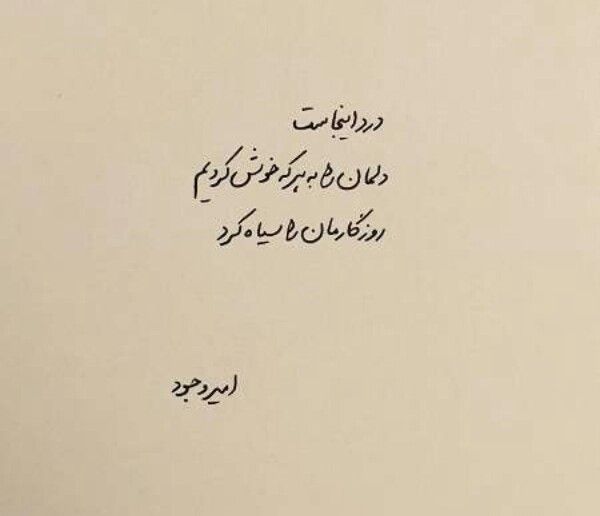 درد اینجاست
دلمان را به هرکه خوش کردیم
روزگارمان را سیاه کرد
امیر وجود